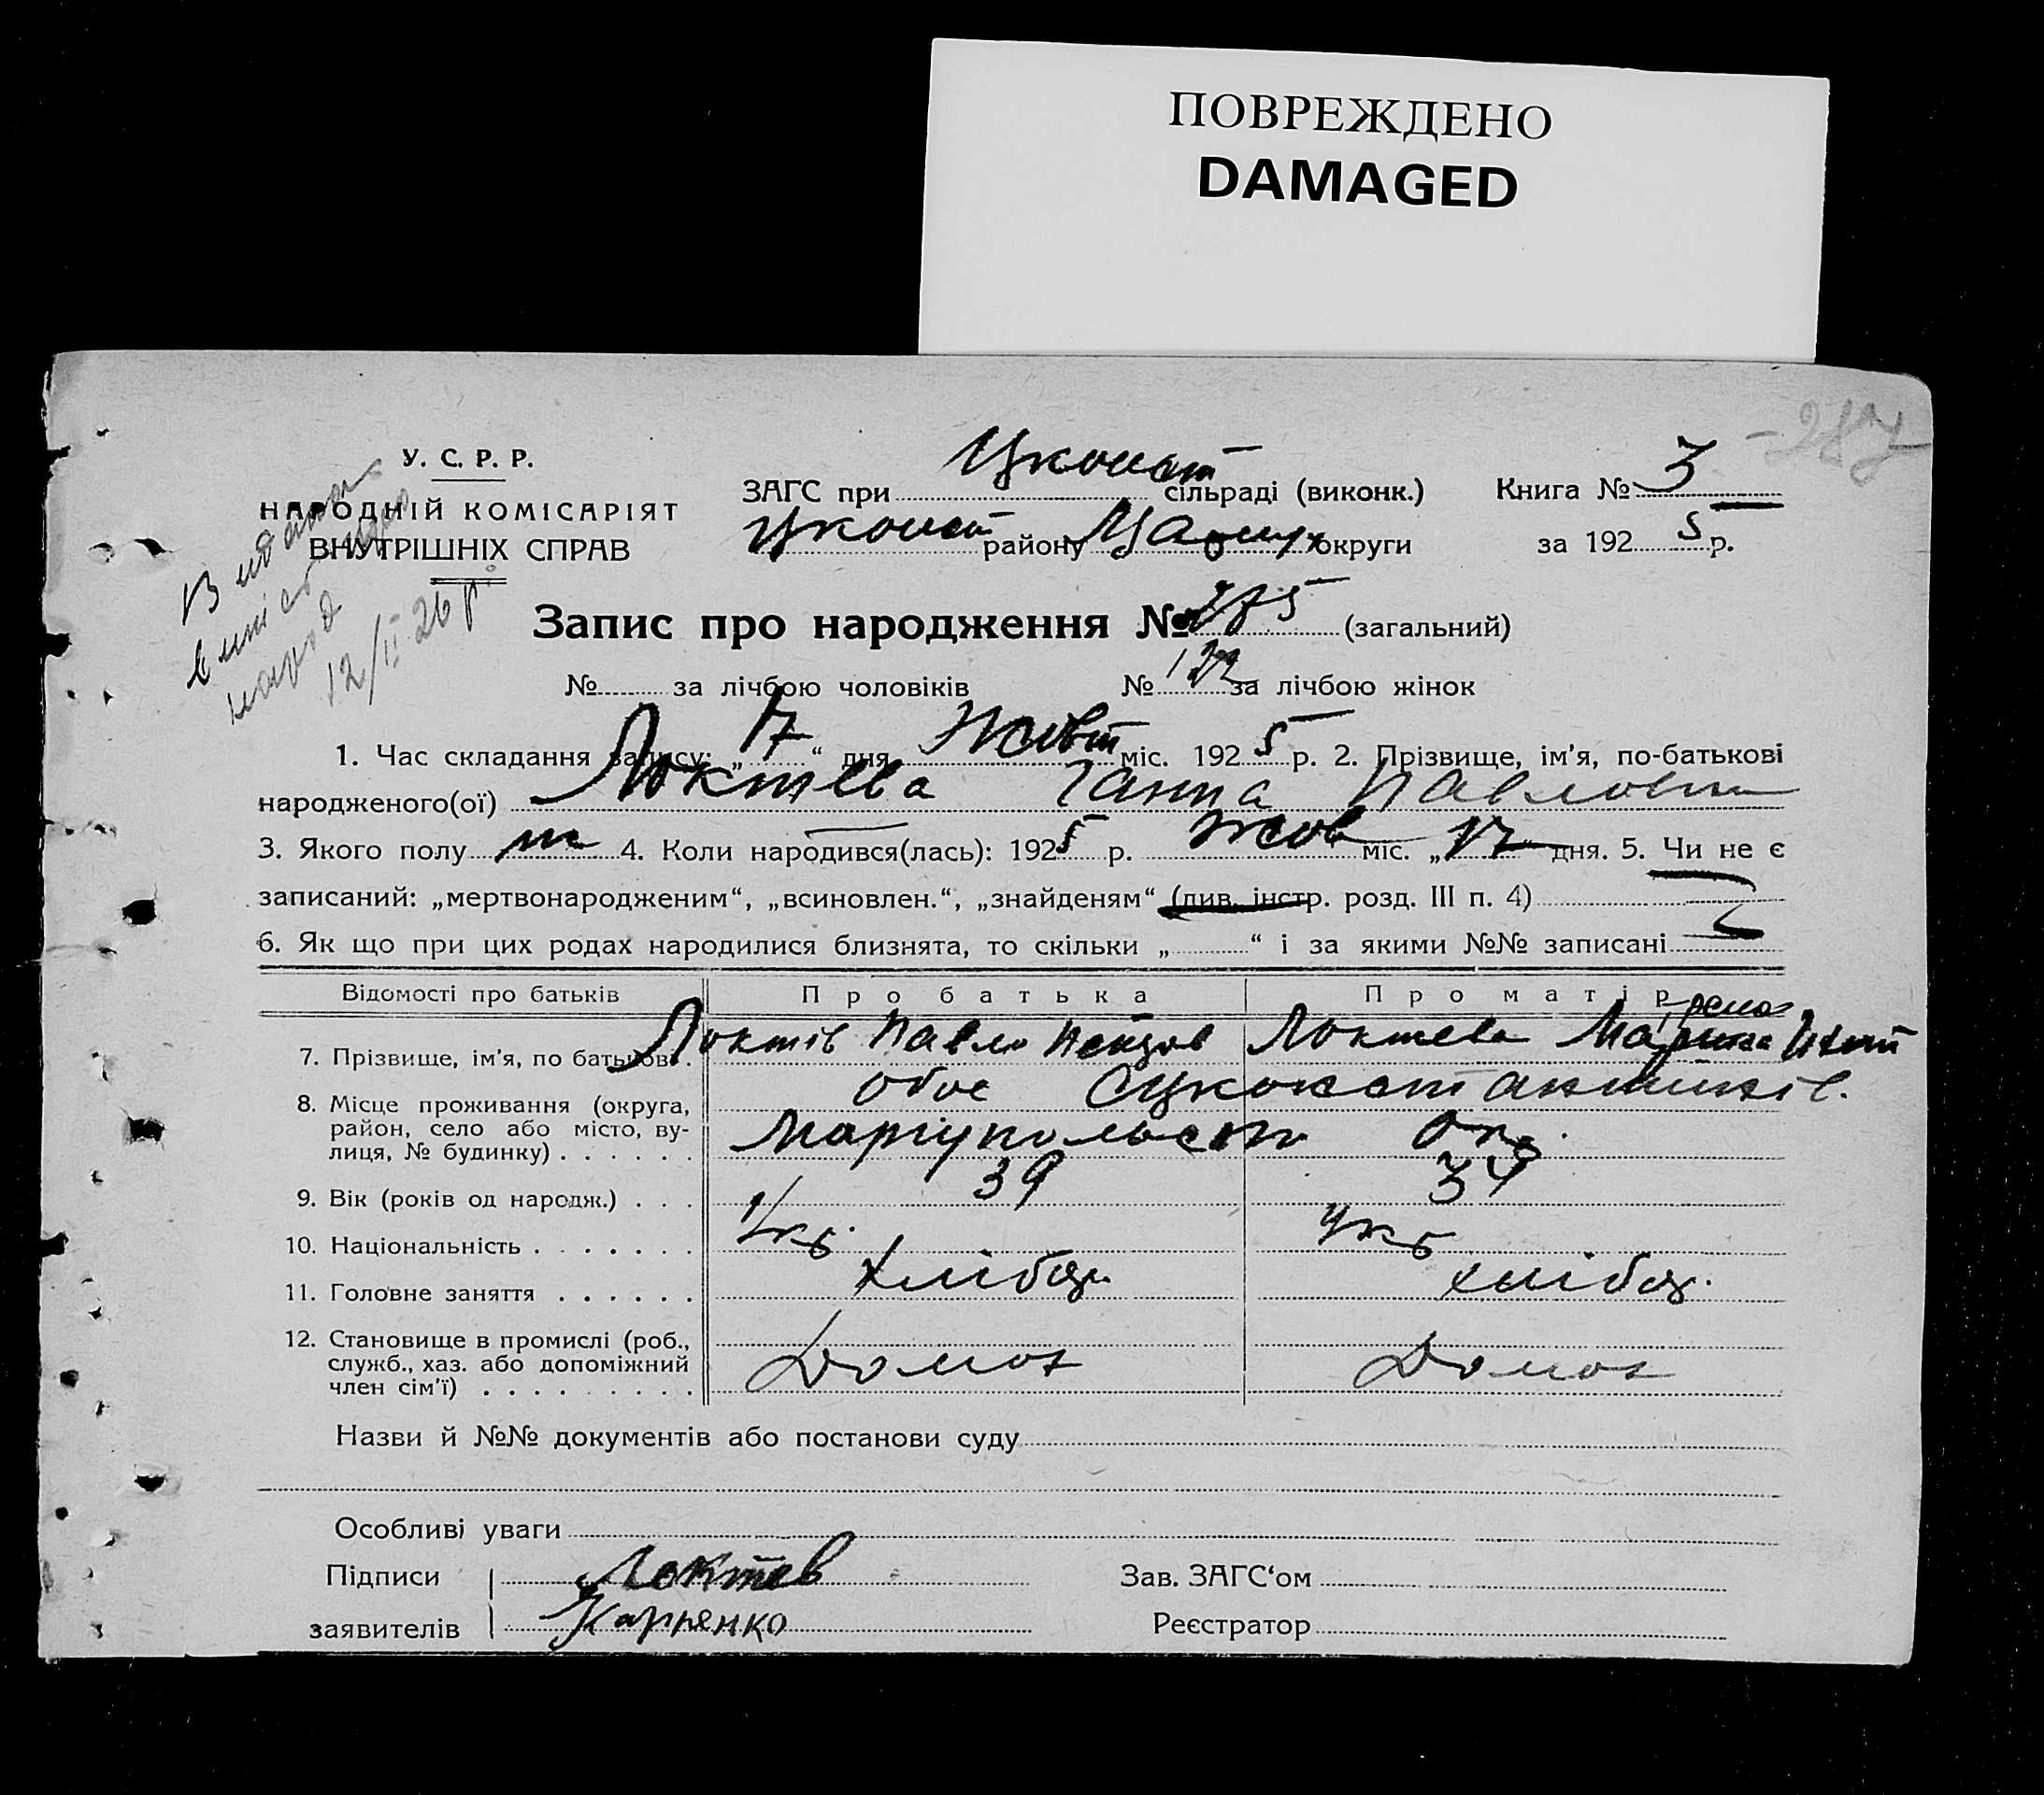 ПОВРЕЖДЕНО
DAMAGED
287
У. С. Р. Р.
НАРОДНІЙ КОМІСАРІЯТ
ВНУТРІШНІХ СПРАВ
12/II 26 р
ЗАГС при Цконст сільраді (виконк.)
Цконст району округи
Книга № 3
за 1925 р.
Запис про народження № 275 (загальний)
№ за лічбою чоловіків № 122 за лічбою жінок
1. Час складання запису: „17“ дня Жовт міс. 1925 р. 2. Прізвище, ім’я, по-батькові
народженого(ої) Локтева Ганна Павловна
3. Якого полу ж 4. Коли народився(лась): 1925 р. Жов міс. „17“ дня. 5. Чи не є
записаний: „мертвонародженим“, „всиновлен.“, „знайденям“ (див. інстр. розд. III п. 4)
6. Як що при цих родах народилися близнята, то скільки „ “ і за якими №№ записані
Відомості про батьків Про батька Про матір
7. Прізвище, ім’я, по батькові. Локтів Павло Локтева Марина
8. Місце проживання (округа, район, село або місто, вулиця, № будинку) обоє Сцконстантинів.
Маріупольськ Окр.
9. Вік (років од народж.) 39 34
10. Національність Укр. Укр
11. Головне заняття хлібор. хлібор.
12. Становище в промислі (роб., служб., хаз. або допоміжний член сім’ї) Домох Домох
Назви й №№ документів або постанови суду
Особливі уваги
Підписи заявителів Локтев
Карпенко
Зав. ЗАГС‘ом
Реєстратор